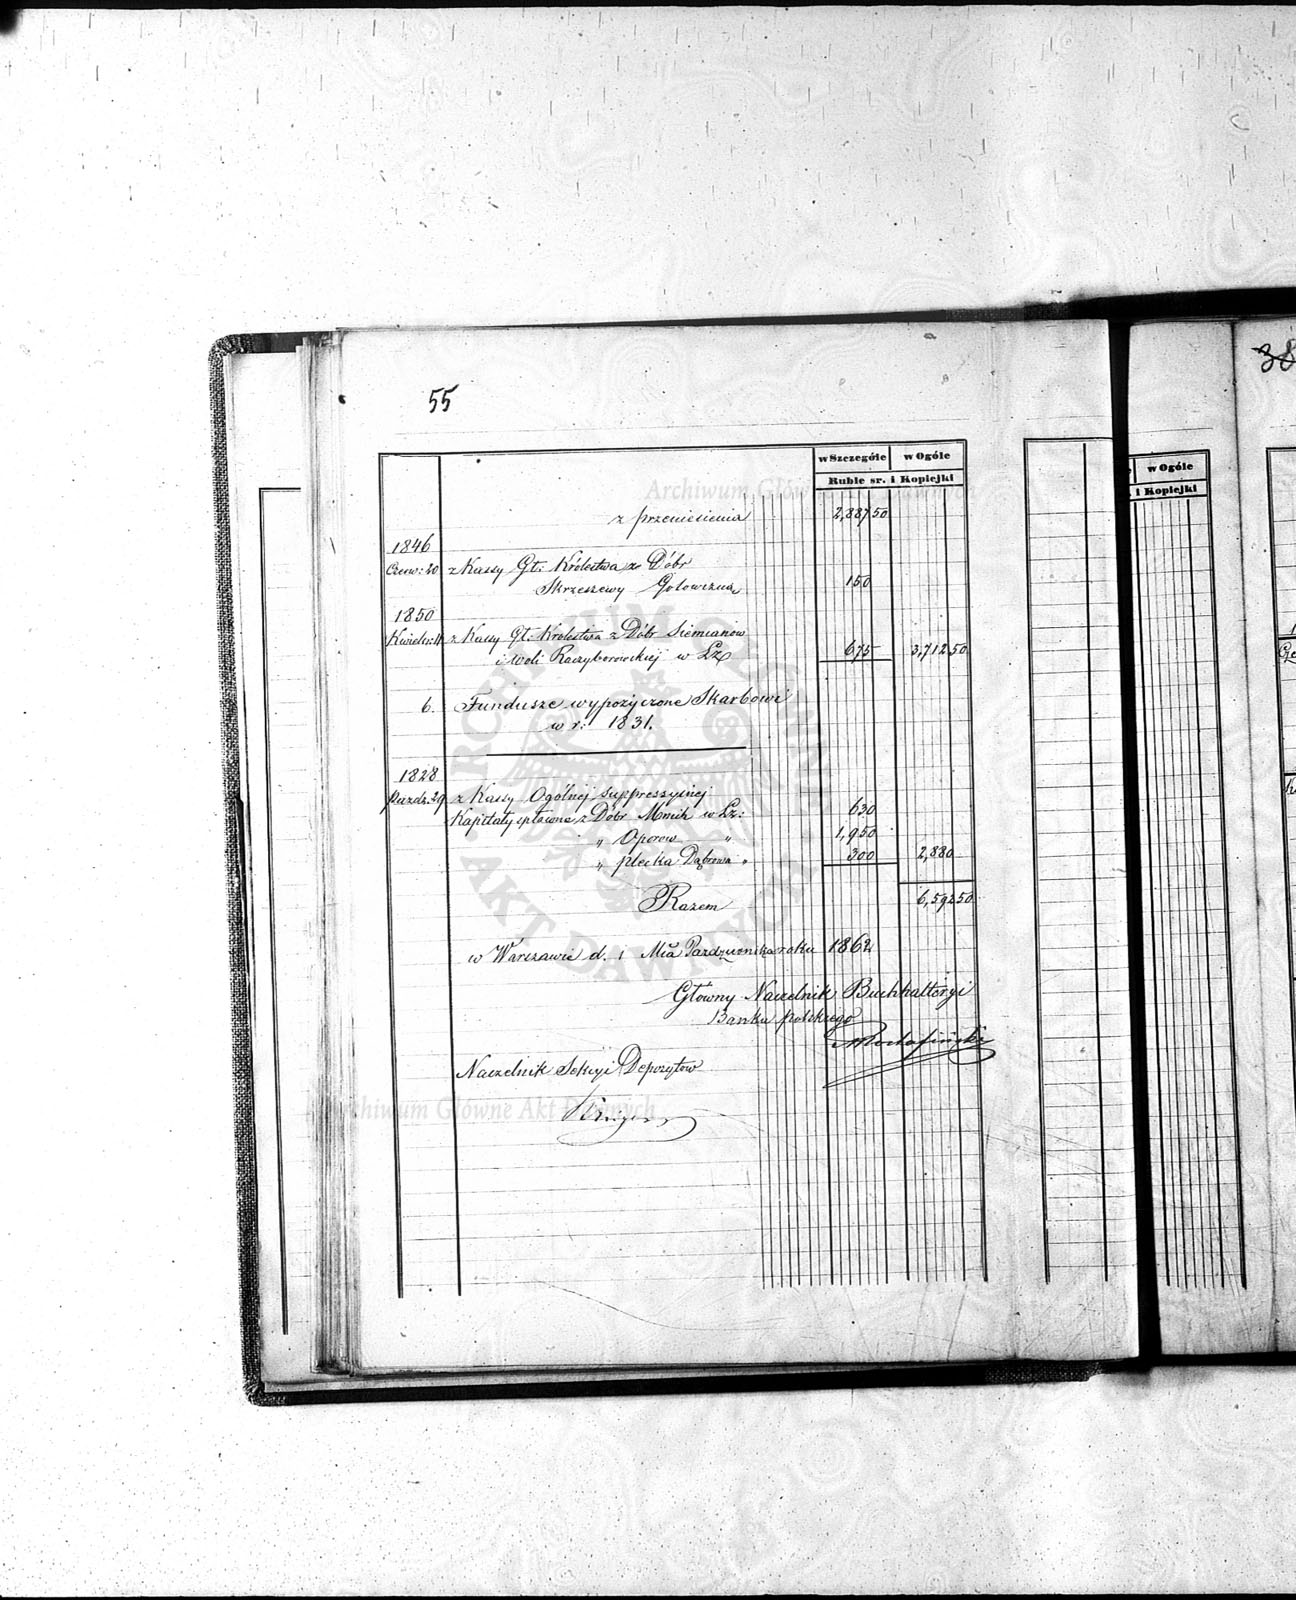 55
38
w Szczególe w Ogóle
Ruble sr. i Kopiejki
w Ogóle
i Kopiejki
z przeniesienia 2,887 50
1846
Czerw: 20 z Kassy Gł: Królestwa z Dóbr
Skrzeszewy 150
1850
Kwiet: z Kassy Gł: Królestwa z Dóbr Siemianów
i Woli Raczyborowskiej w Lz 675 3,712 50
6. Fundusze wypożyczone Skarbowi
w r: 1831.
1828
Paźdz. 29 z Kassy Ogólnej suppressyjnej
Kapitały spłacone z Dóbr Mnich w Lz: 630
" Oporow " 1,950
" plecka Dąbrowa " 300 2,880
Razem 6,592 50
w Warszawie d. 1 Mca Pazdziernika roku 1862
Główny Naczelnik Buchhalteryi
Banku Polskiego
Naczelnik Sekcyi Depozytow
Archiwum Główne Akt Dawnych
ARCHIWUM GŁÓWNE AKT DAWNYCH
Archiwum Główne Akt Dawnych